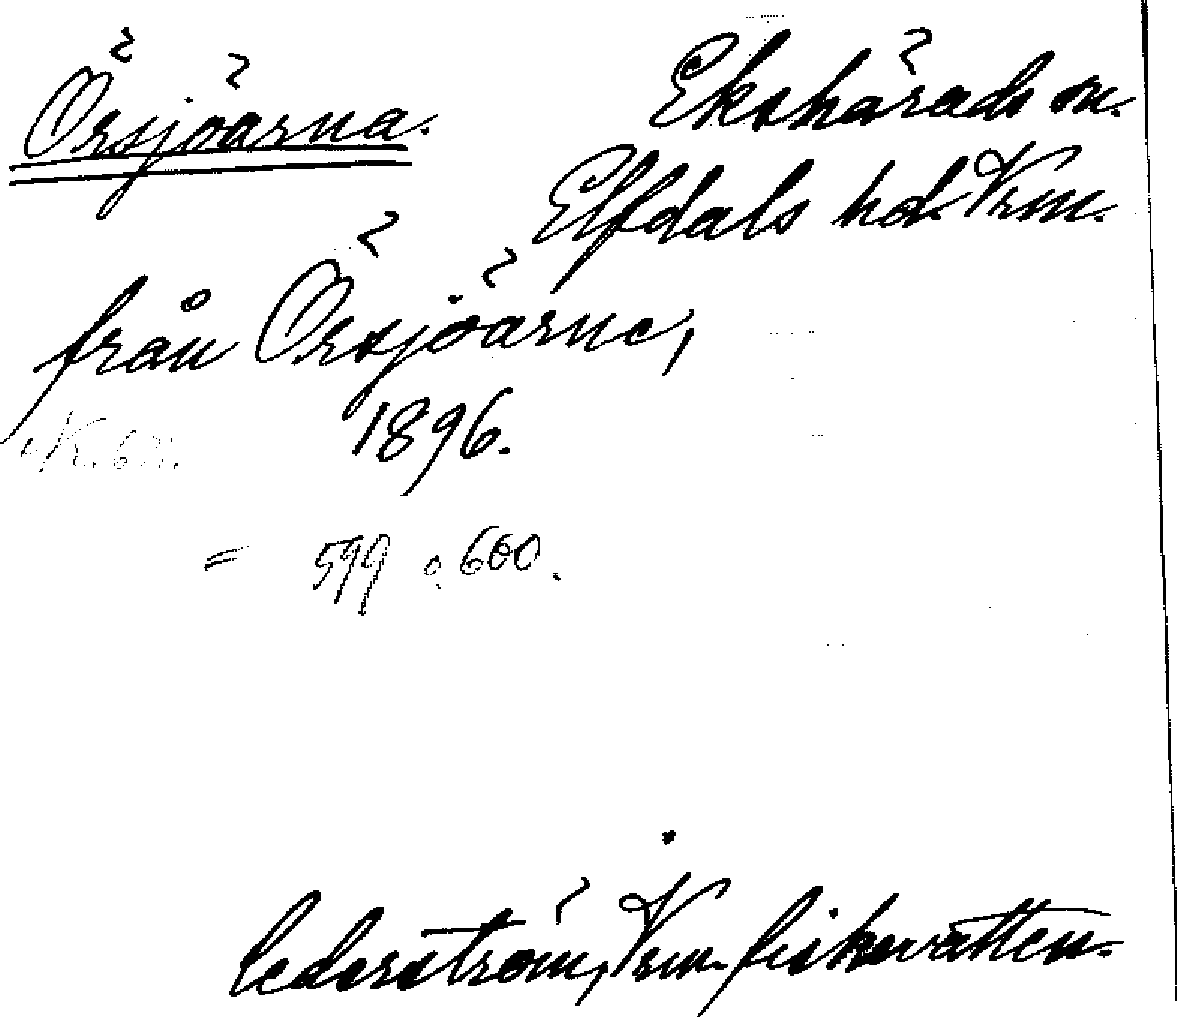 Örsjöarna.
Ekshärads sn.
Elfdals hd. Vrm.
från Örsjöarne,
1896.
= 599 o. 600.
Cederström, Vrm. fiskevatten.